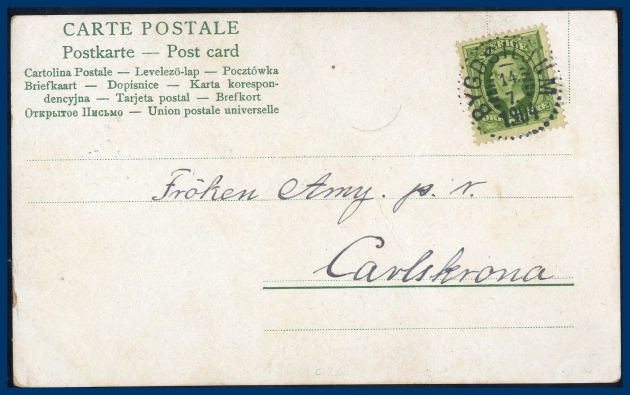 CARTE POSTALE
Postkarte — Post card
Cartolina Postale — Levelezö-lap — Pocztówka
Briefkaart — Dopisnice — Karta korespon-
dencyjna — Tarjeta postal — Brefkort
Открытое Письмо — Union postale universelle
SVERIGE
14
7
1904
Fröken Amy. p. r.
Carlskrona